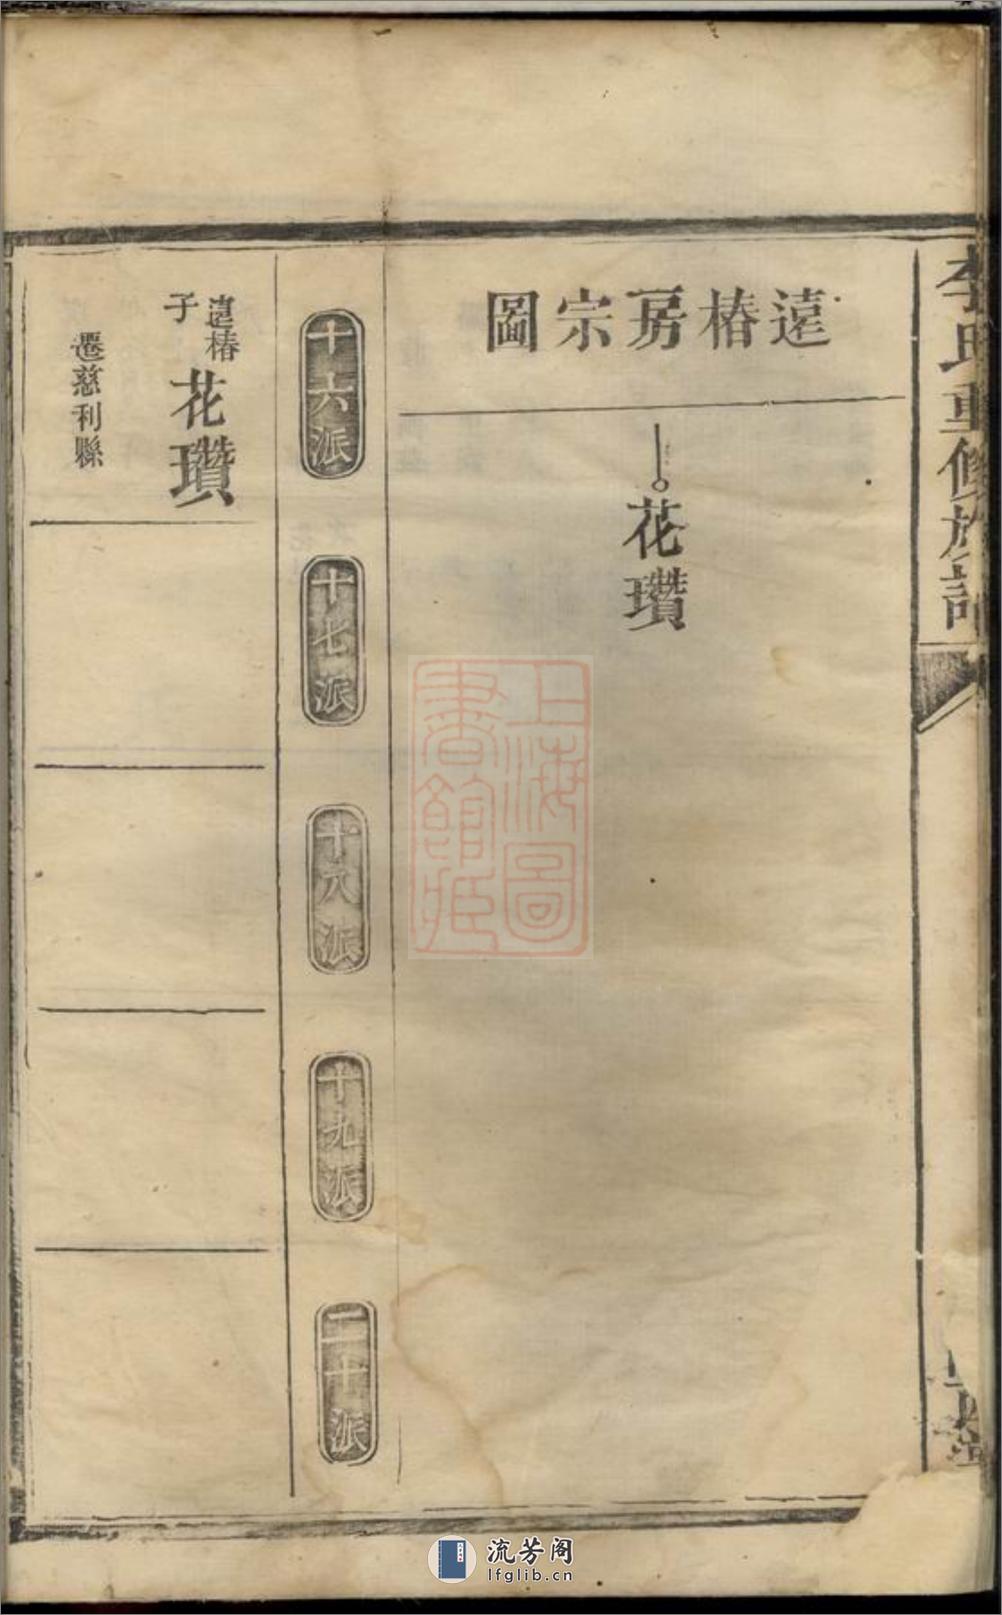 李氏重修族譜
遠椿房宗圖
花瓚
十六派
十七派
十八派
十九派
二十派
遠椿
子
花瓚
遷慈利縣
上海圖
書館藏
流芳阁
lfglib.cn